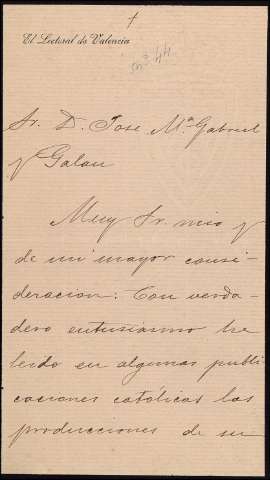 El Lectoral de Valencia
nº 44
Sr. D. Jose Mª Gabriel
y Galan
Muy Sr. mio y
de mi mayor consi-
deracion: Con verda-
dero entusiasmo he
leido en algunas publi
caciones católicas las
producciones de su